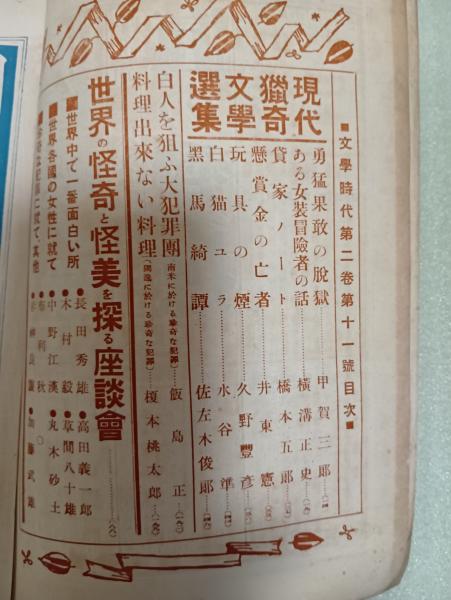 ■文學時代第二卷第十一號目次■
現代
獵奇
文學
選集
勇猛果敢の脫獄……甲賀三郎
ある女裝冒險者の話……橫溝正史
貸家ノート……橋本五郎
懸賞金の亡者……井東憲
玩具の煙……久野豐彥
白猫ユラ……水谷準
黑馬綺譚……佐左木俊郎
白人を狙ふ大犯罪團(南米に於ける珍奇な犯罪)……飯島正
料理出來ない料理(獨逸に於ける珍奇な犯罪)……榎本桃太郎
世界の怪奇と怪美を探る座談會
■世界中で一番面白い所
■世界各國の女性に就て
■珍奇な犯罪に就て、其他
●長田秀雄●高田義一郎
●木村毅●草間八十雄
●中野江漢●丸木砂土
●布利秋○
●加藤武雄